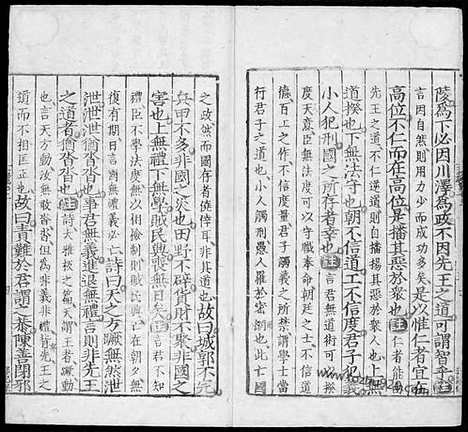 陵爲下必因川澤爲政不因先王之道可謂智乎注
言因自然則用力少而成功多矣是以惟仁者宜在
高位不仁而在高位是播其惡於衆也注仁者能由
先王之道不仁逆道則播揚其惡於衆人也上無
道揆也下無法守也朝不信道工不信度君子犯義
小人犯刑國之所存者幸也注言君無道術可以揆
度天意臣無法度可以守職奉命朝廷之士不信道
德百工之作不信度量君子觸義之所禁謂學士當
行君子之道也小人觸刑愚人罹於密網也此亡國
之政然而國存者僥倖耳非其道也故曰城郭不完
兵甲不多非國之災也田野不辟貨財不聚非國之
害也上無禮下無學賊民興喪無日矣注言君不知
禮臣不學法度無以相檢制則賊民興亡在朝夕無
復有期日言國無禮義必亡詩曰天之方蹶無然泄
泄泄泄猶沓沓也事君無義進退無禮言則非先王
之道者猶沓沓也注詩大雅板之篇天謂王者蹶動
也言天方動汝無敢沓沓但爲非義非禮背先王之
道而不相匡正也故曰責難於君謂之恭陳善閉邪